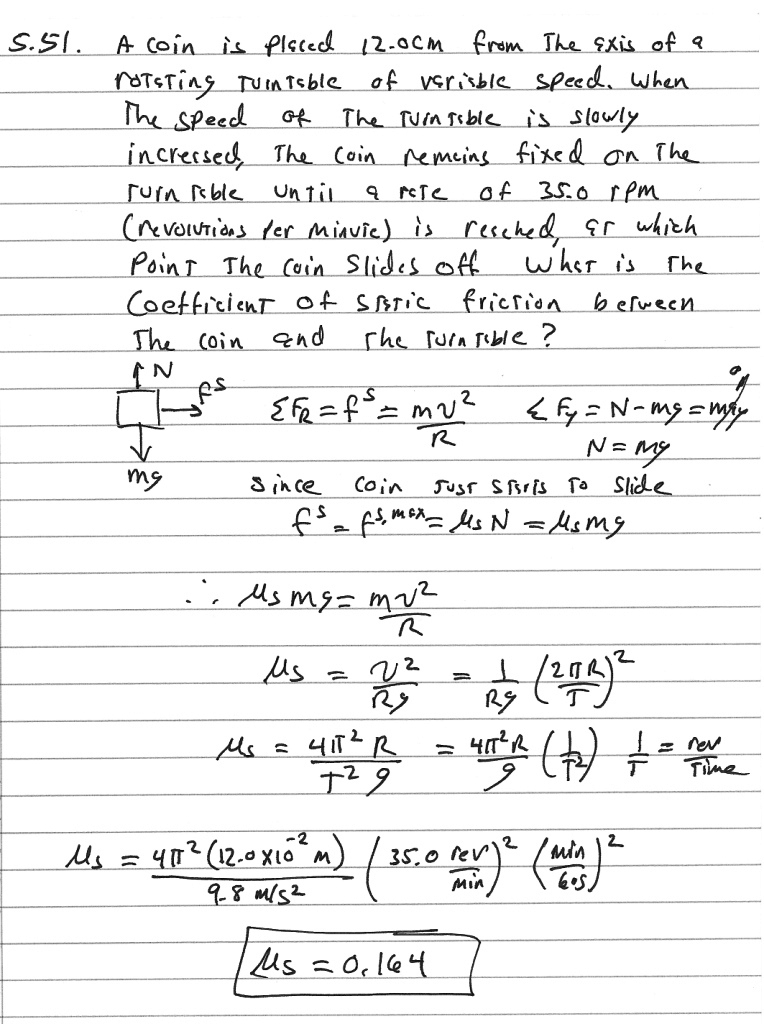 5.51. A coin is placed 12.0cm from The axis of a
rotating Turntable of variable speed. When
The speed of The Turntable is slowly
increased, The coin remains fixed on The
Turntable until a rate of 35.0 rpm
(revolutions per minute) is reached, at which
Point The coin Slides off. What is The
Coefficient of static friction between
The coin and The Turntable?
N
f^s
mg
ΣF_R = f^s = mv²/R   ΣF_y = N - mg = ma_y  0
N = mg
since coin just starts to slide
f^s = f^{s,max} = μ_s N = μ_s mg
∴ μ_s mg = mv²/R
μ_s = v²/Rg = 1/Rg (2πR/T)²
μ_s = 4π²R/T²g = 4π²R/g (1/T²)   1/T = rev/Time
μ_s = 4π²(12.0x10⁻² m)/9.8 m/s² (35.0 rev/min)² (min/60s)²
μ_s = 0.164